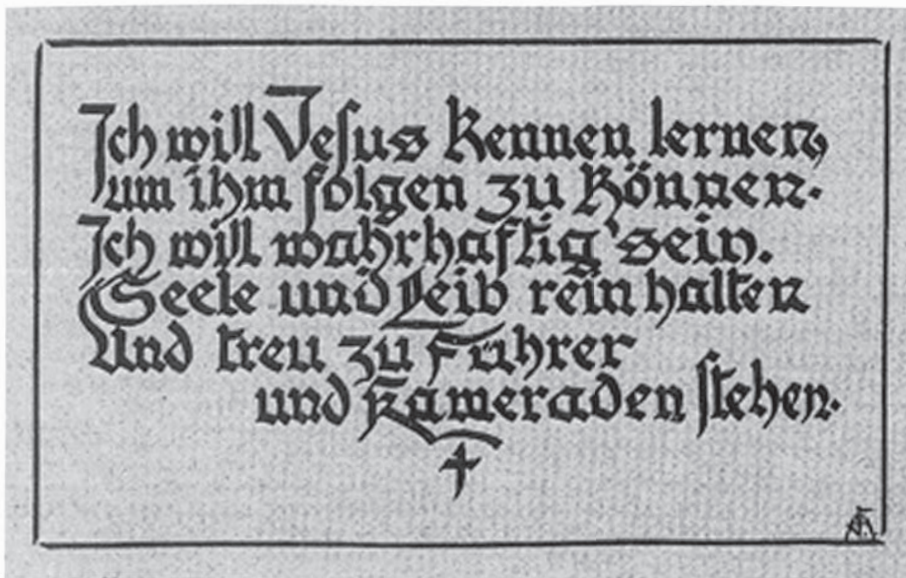 Ich will Jesus kennen lernen,
um ihm folgen zu können.
Ich will wahrhaftig sein.
Seele und Leib rein halten
Und treu zu Führer
und Kameraden stehen.